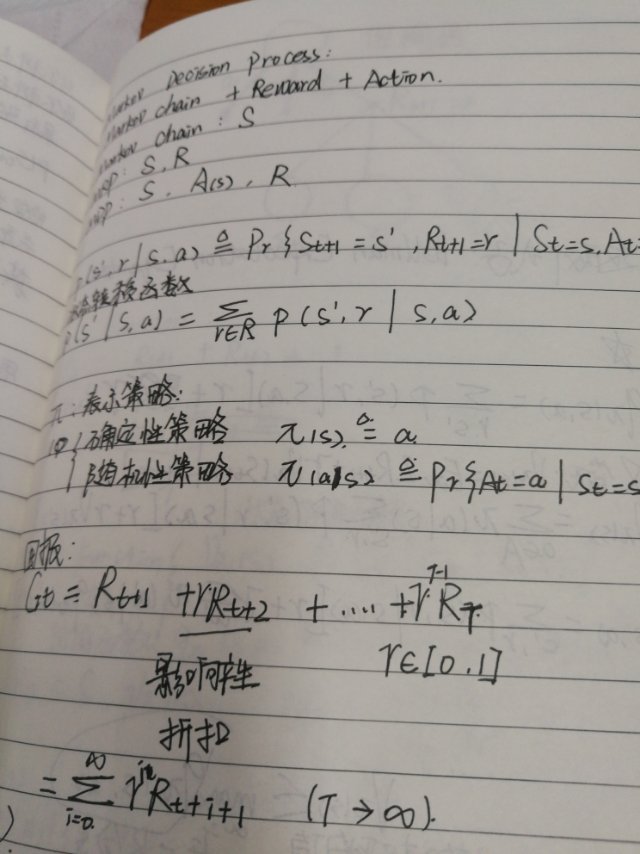 Markov Decision Process:
Markov chain + Reward + Action.
Markov chain: S
MRP: S, R
MDP: S, A(s), R
p(s', r | s, a) ≜ Pr{St+1 = s', Rt+1 = r | St = s, At =
状态转移函数
p(s' | s, a) = Σ r∈R p(s', r | s, a)
π: 表示策略:
确定性策略 π(s) ≜ a
随机性策略 π(a|s) ≜ Pr{At = a | St = s
回报:
Gt = Rt+1 + γRt+2 + .... + γ^T-1 RT
影响 γ∈[0,1]
折扣
= Σ i=0 ∞ γ^i Rt+i+1 (T → ∞).